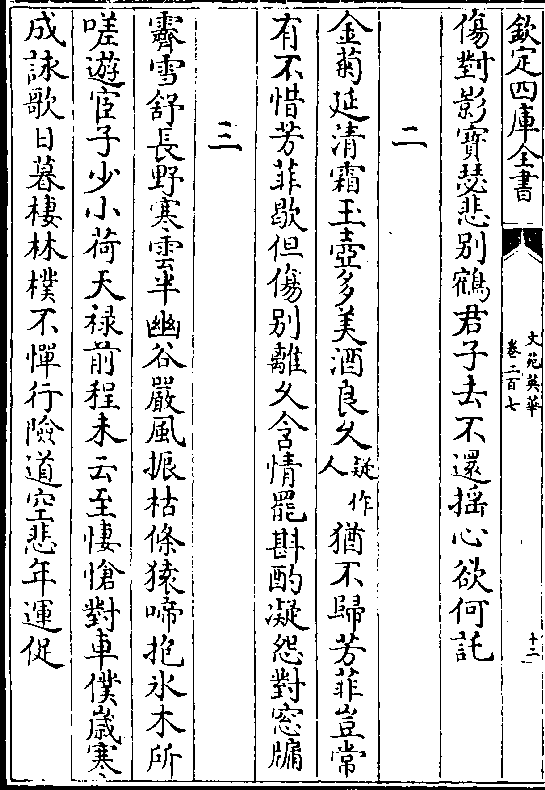 欽定四庫全書
文苑英華
卷二百七
十二
傷對影寶瑟悲别鶴君子去不還揺心欲何託
二
金菊延清霜玉壺多美酒良久疑作人猶不歸芳菲豈常
有不惜芳菲歇但傷别離久含情罷斟酌凝怨對窓牖
三
霽雪舒長野寒雲半幽谷嚴風振枯條猿啼抱冰木所
嗟遊宦子少小荷天禄前程未云至悽愴對車僕嵗寒
成詠歌日暮棲林樸不憚行險道空悲年運促